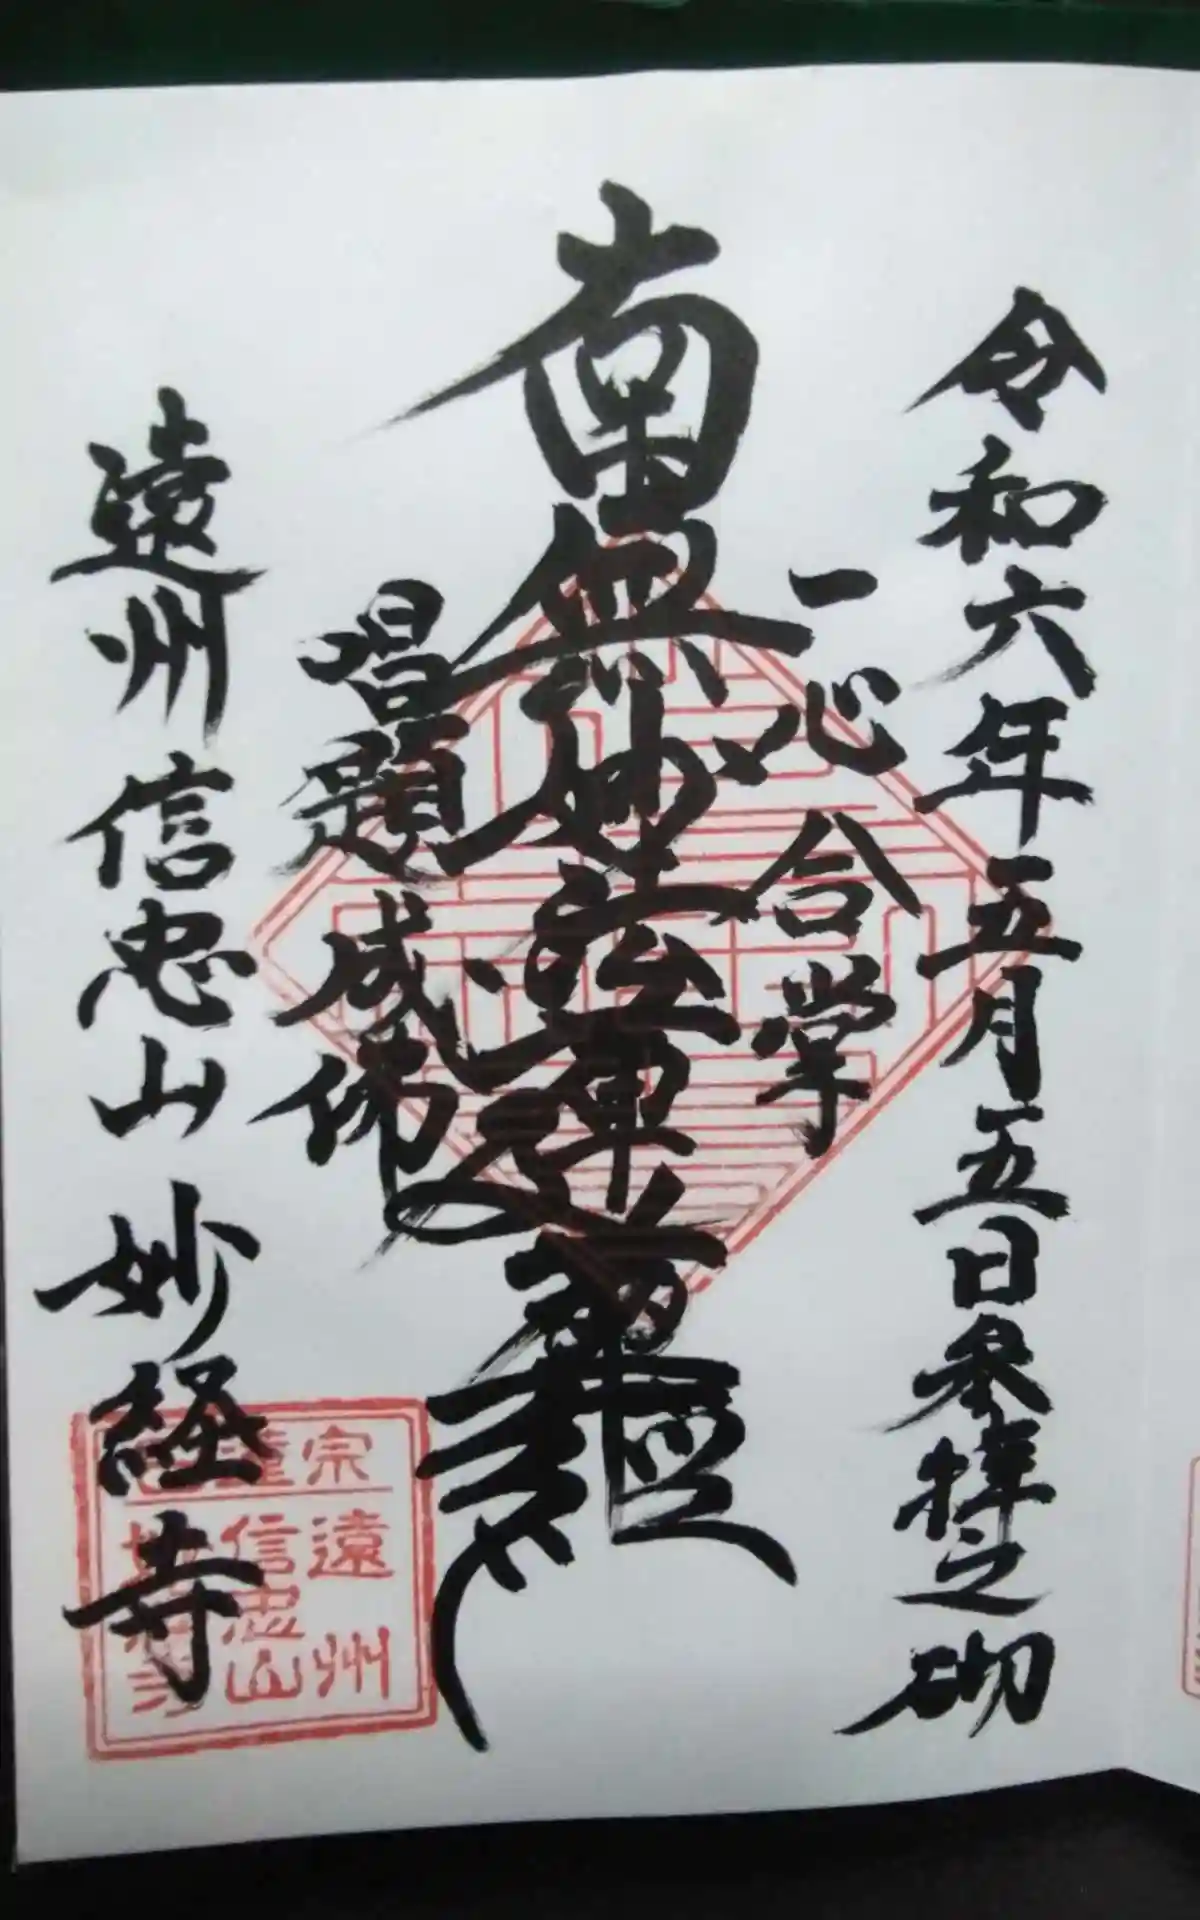 令和六年五月五日参拝之砌
一心合掌
南無妙法蓮華経
唱題成佛
遠州信忠山妙経寺
宗
遠州
信忠山